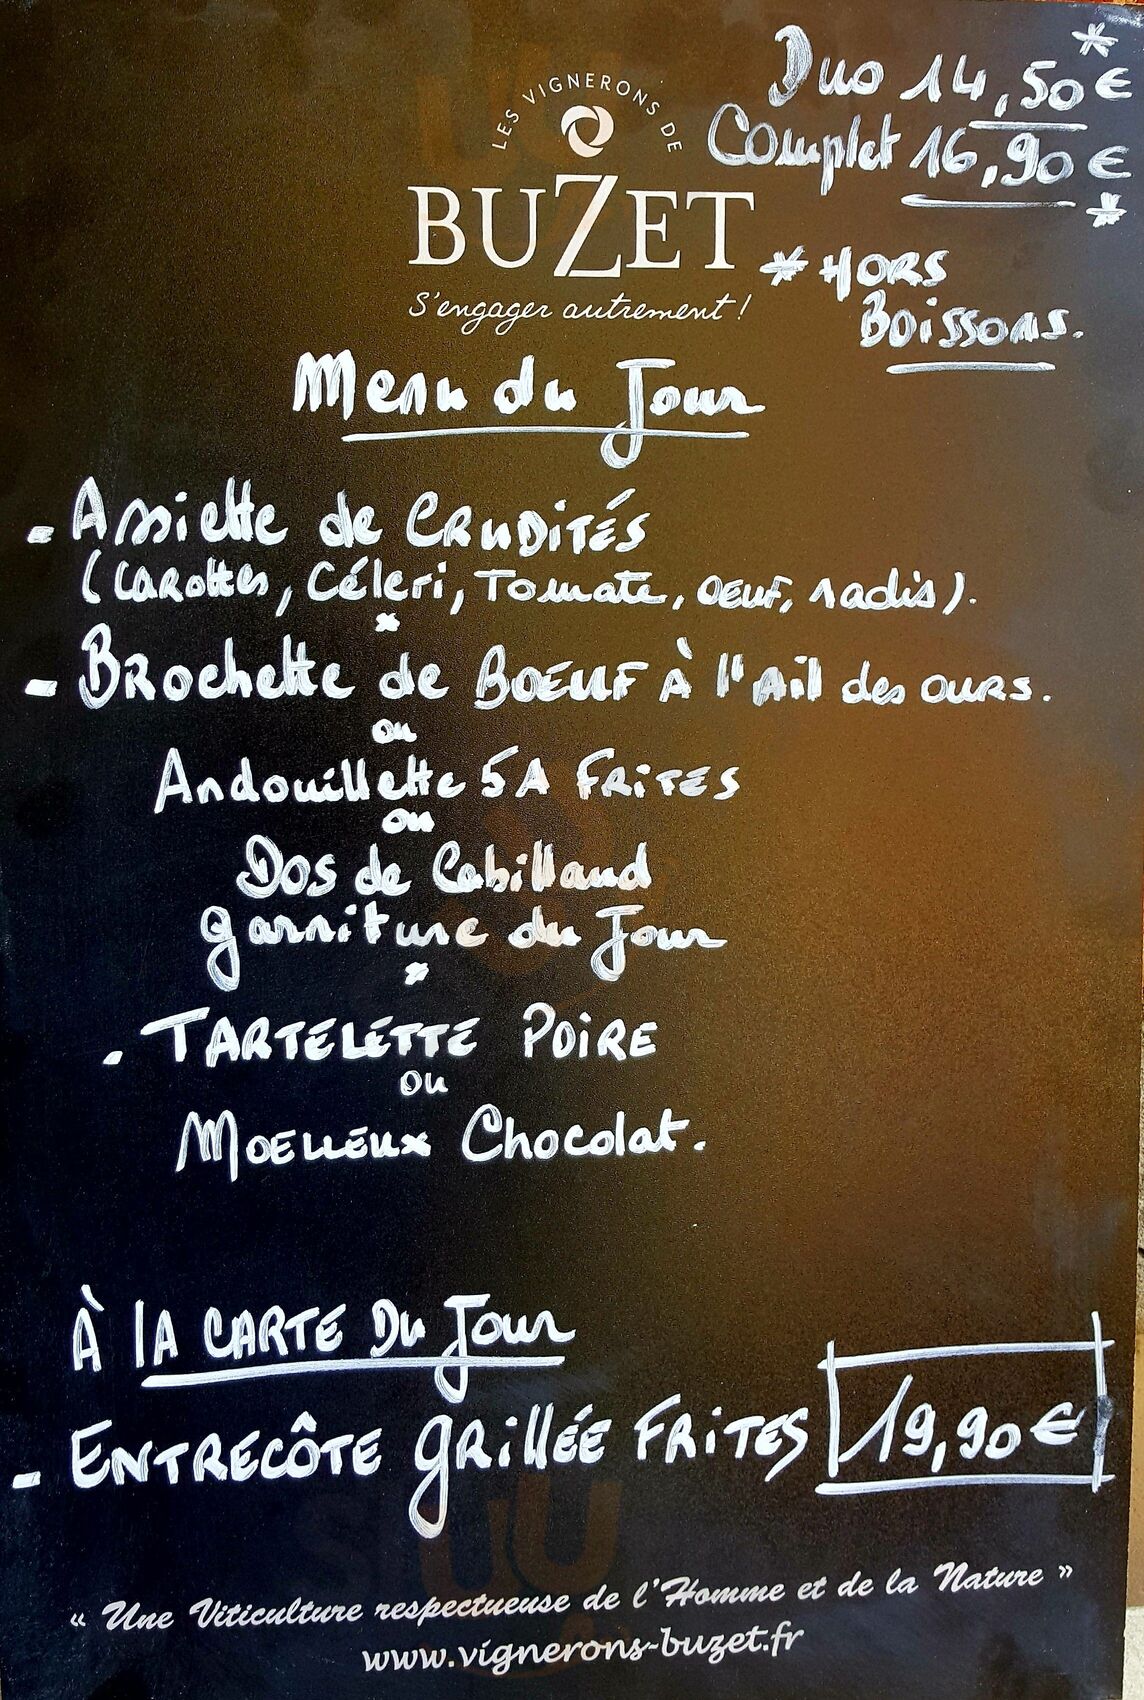 Duo 14,50€ *
Complet 16,90€ *
* HORS
BOISSONS.
LES VIGNERONS DE
BUZET
S'engager autrement !
Menu du Jour
- Assiette de CRUDITÉS
(CAROttes, Céleri, Tomate, OEUF, radis).
*
- BROchette de BOEUF À l'Ail des OURS.
ou
Andouillette 5A FRITES
ou
Dos de Cabillaud
garniture du Jour
*
- TARTELETTE POIRE
ou
MOELLEUX Chocolat.
À lA CARTE DU Jour
- ENTRECÔTE gRillÉE FRITES 19,90€
« Une Viticulture respectueuse de l'Homme et de la Nature »
www.vignerons-buzet.fr